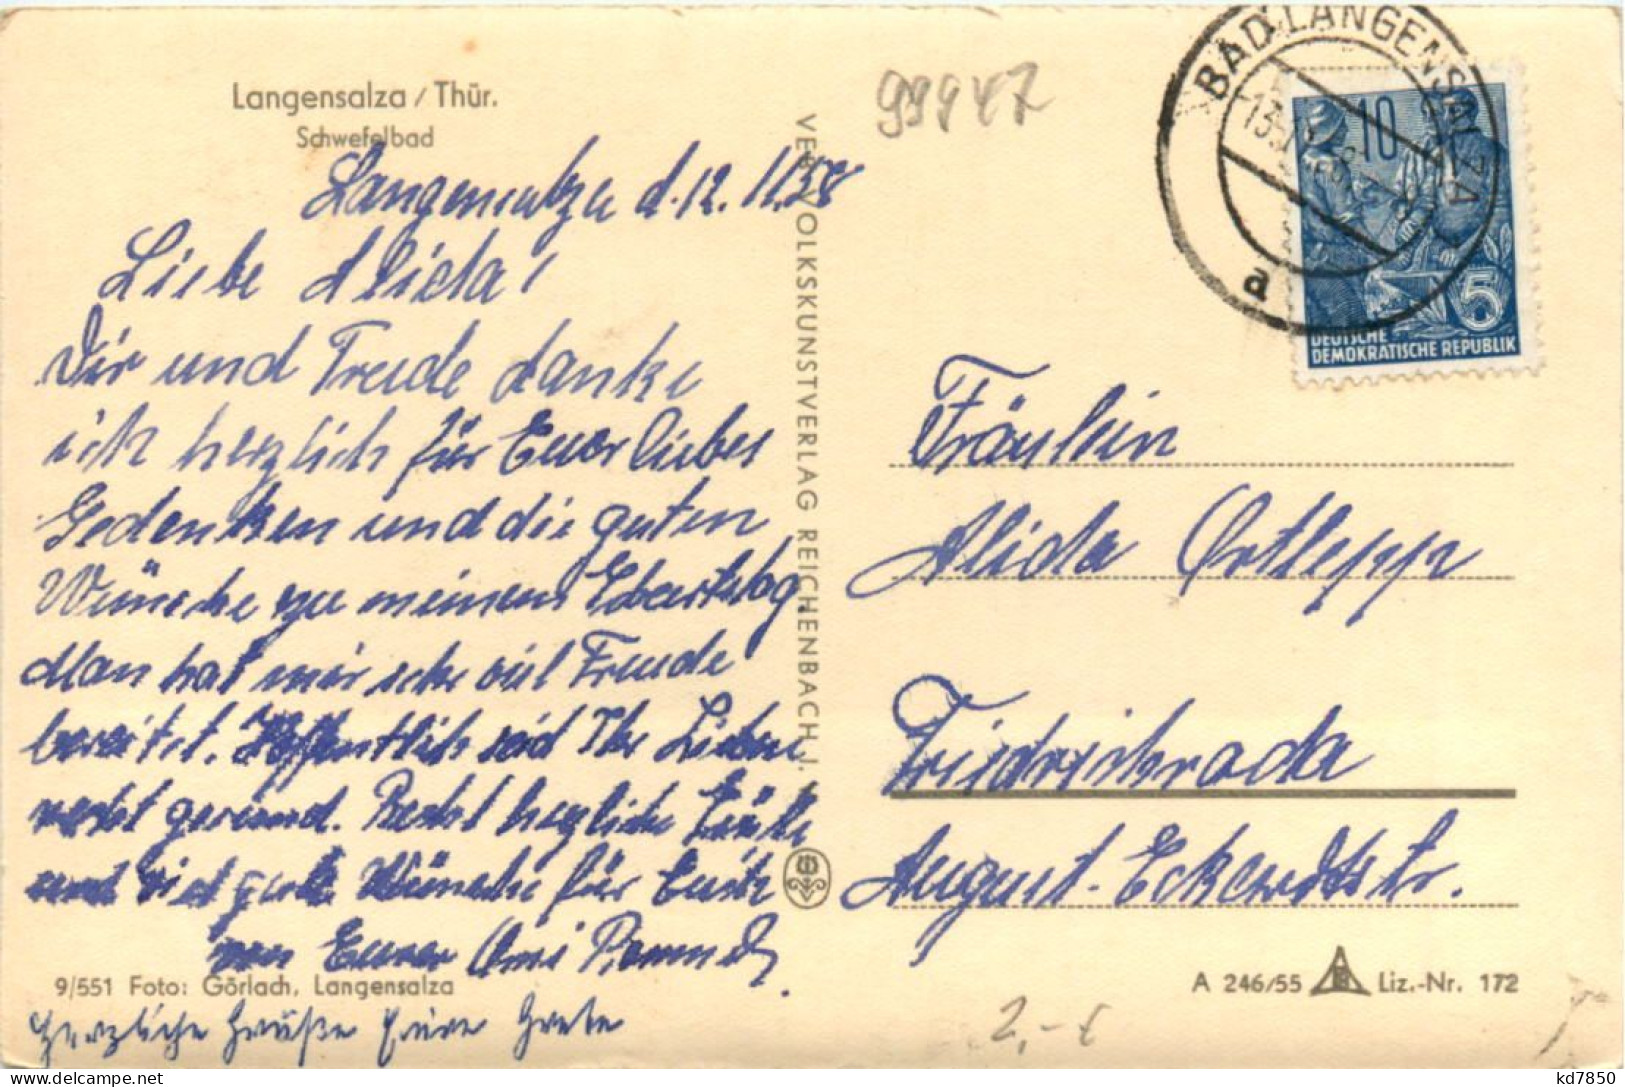 Langensalza / Thür.
Schwefelbad
Langensalza d. 12. 11. 58
Liebe Alida!
Dir und Freude danke
ich herzlich für Euer liebes
Gedenken und die guten
Wünsche zu meinem Geburtstag.
Man hat mir sehr viel Freude
bereitet. Hoffentlich seid Ihr Lieben
recht gesund. Recht herzliche Grüße
und viel gute Wünsche für Euch
von Eurer Omi
9/551 Foto: Görlach, Langensalza
Herzliche Grüße Eure Grete
VEB VOLKSKUNSTVERLAG REICHENBACH J. V.
99947
BAD LANGENSALZA
a
10
5
DEUTSCHE
DEMOKRATISCHE REPUBLIK
Fräulein
Alida Ortlepp
Friedrichroda
August-Eckardtstr.
A 246/55
Liz.-Nr. 172
2,-
kd7850